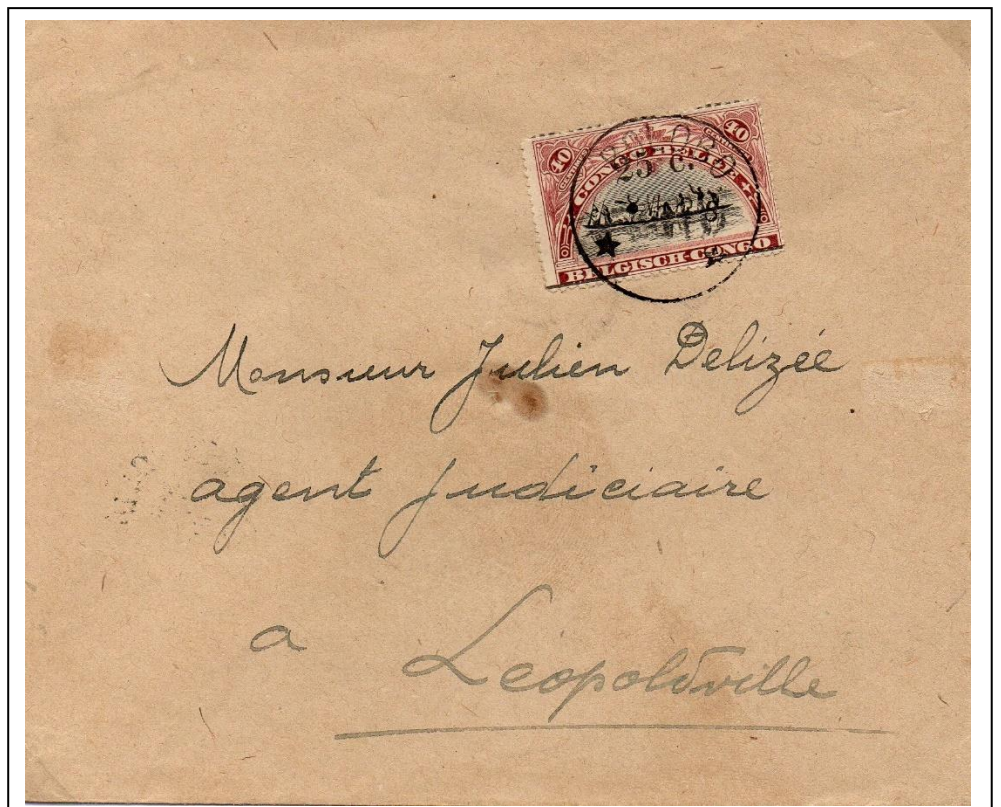 40 40
CONGO BELGE
25 C.
BELGISCH-CONGO
Monsieur Julien Delizée
agent judiciaire
a Léopoldville